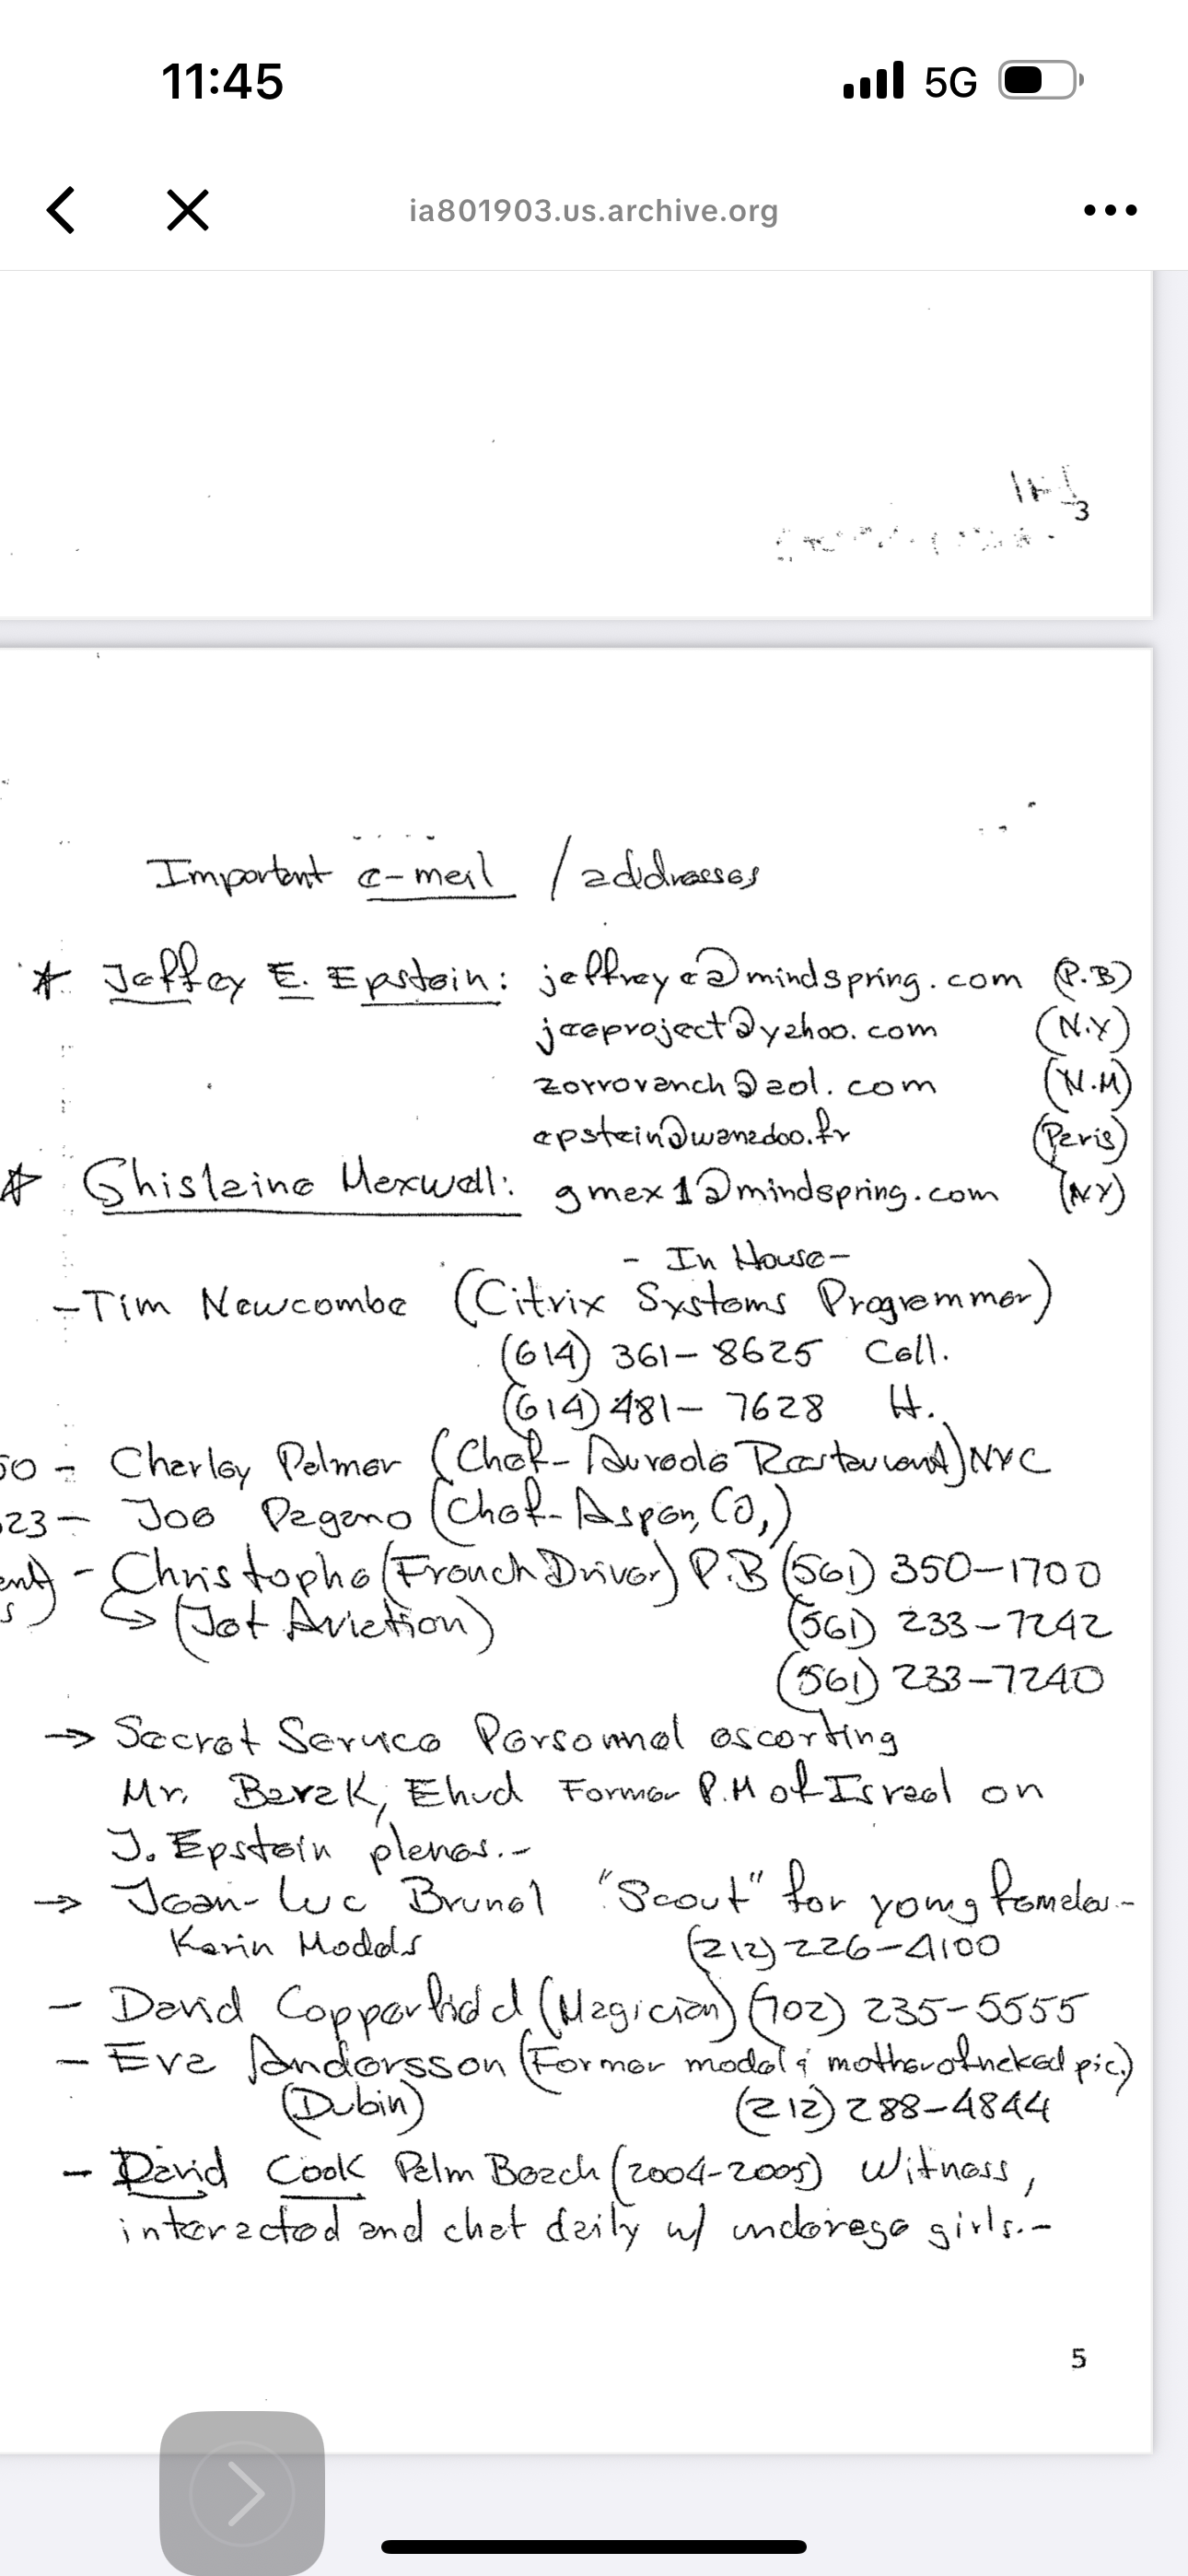 11:45
5G
ia801903.us.archive.org
3
Important e-mail / addresses
Jeffey E. Epstein: jeffreye@mindspring.com (P.B)
jeeproject@yahoo.com (N.Y)
zorroranch@aol.com (N.M)
epstein@wanadoo.fr (Paris)
Ghislaine Maxwell: gmax1@mindspring.com (NY)
- In House -
- Tim Newcombe (Citrix Systems Programmer)
(614) 361-8625 Cell.
(614) 481-7628 H.
50 - Charley Palmer (Chef- Aureole Restaurant) NYC
23 - Joe Pagano (Chef- Aspen, CO,)
- Christophe (French Driver) P.B (561) 350-1700
(Jet Aviation) (561) 233-7242
(561) 233-7240
→ Secret Service Personnel escorting
Mr. Barak, Ehud Former P.M of Israel on
J. Epstein planes.-
→ Jean-Luc Brunel "Scout" for young females.-
Karin Models (212) 226-4100
- David Copperfield (Magician) (702) 235-5555
- Eva Andersson (Former model & mother of naked pic.)
(Dubin) (212) 288-4844
- David Cook Palm Beach (2004-2005) Witness,
interacted and chat daily w/ underage girls.-
5